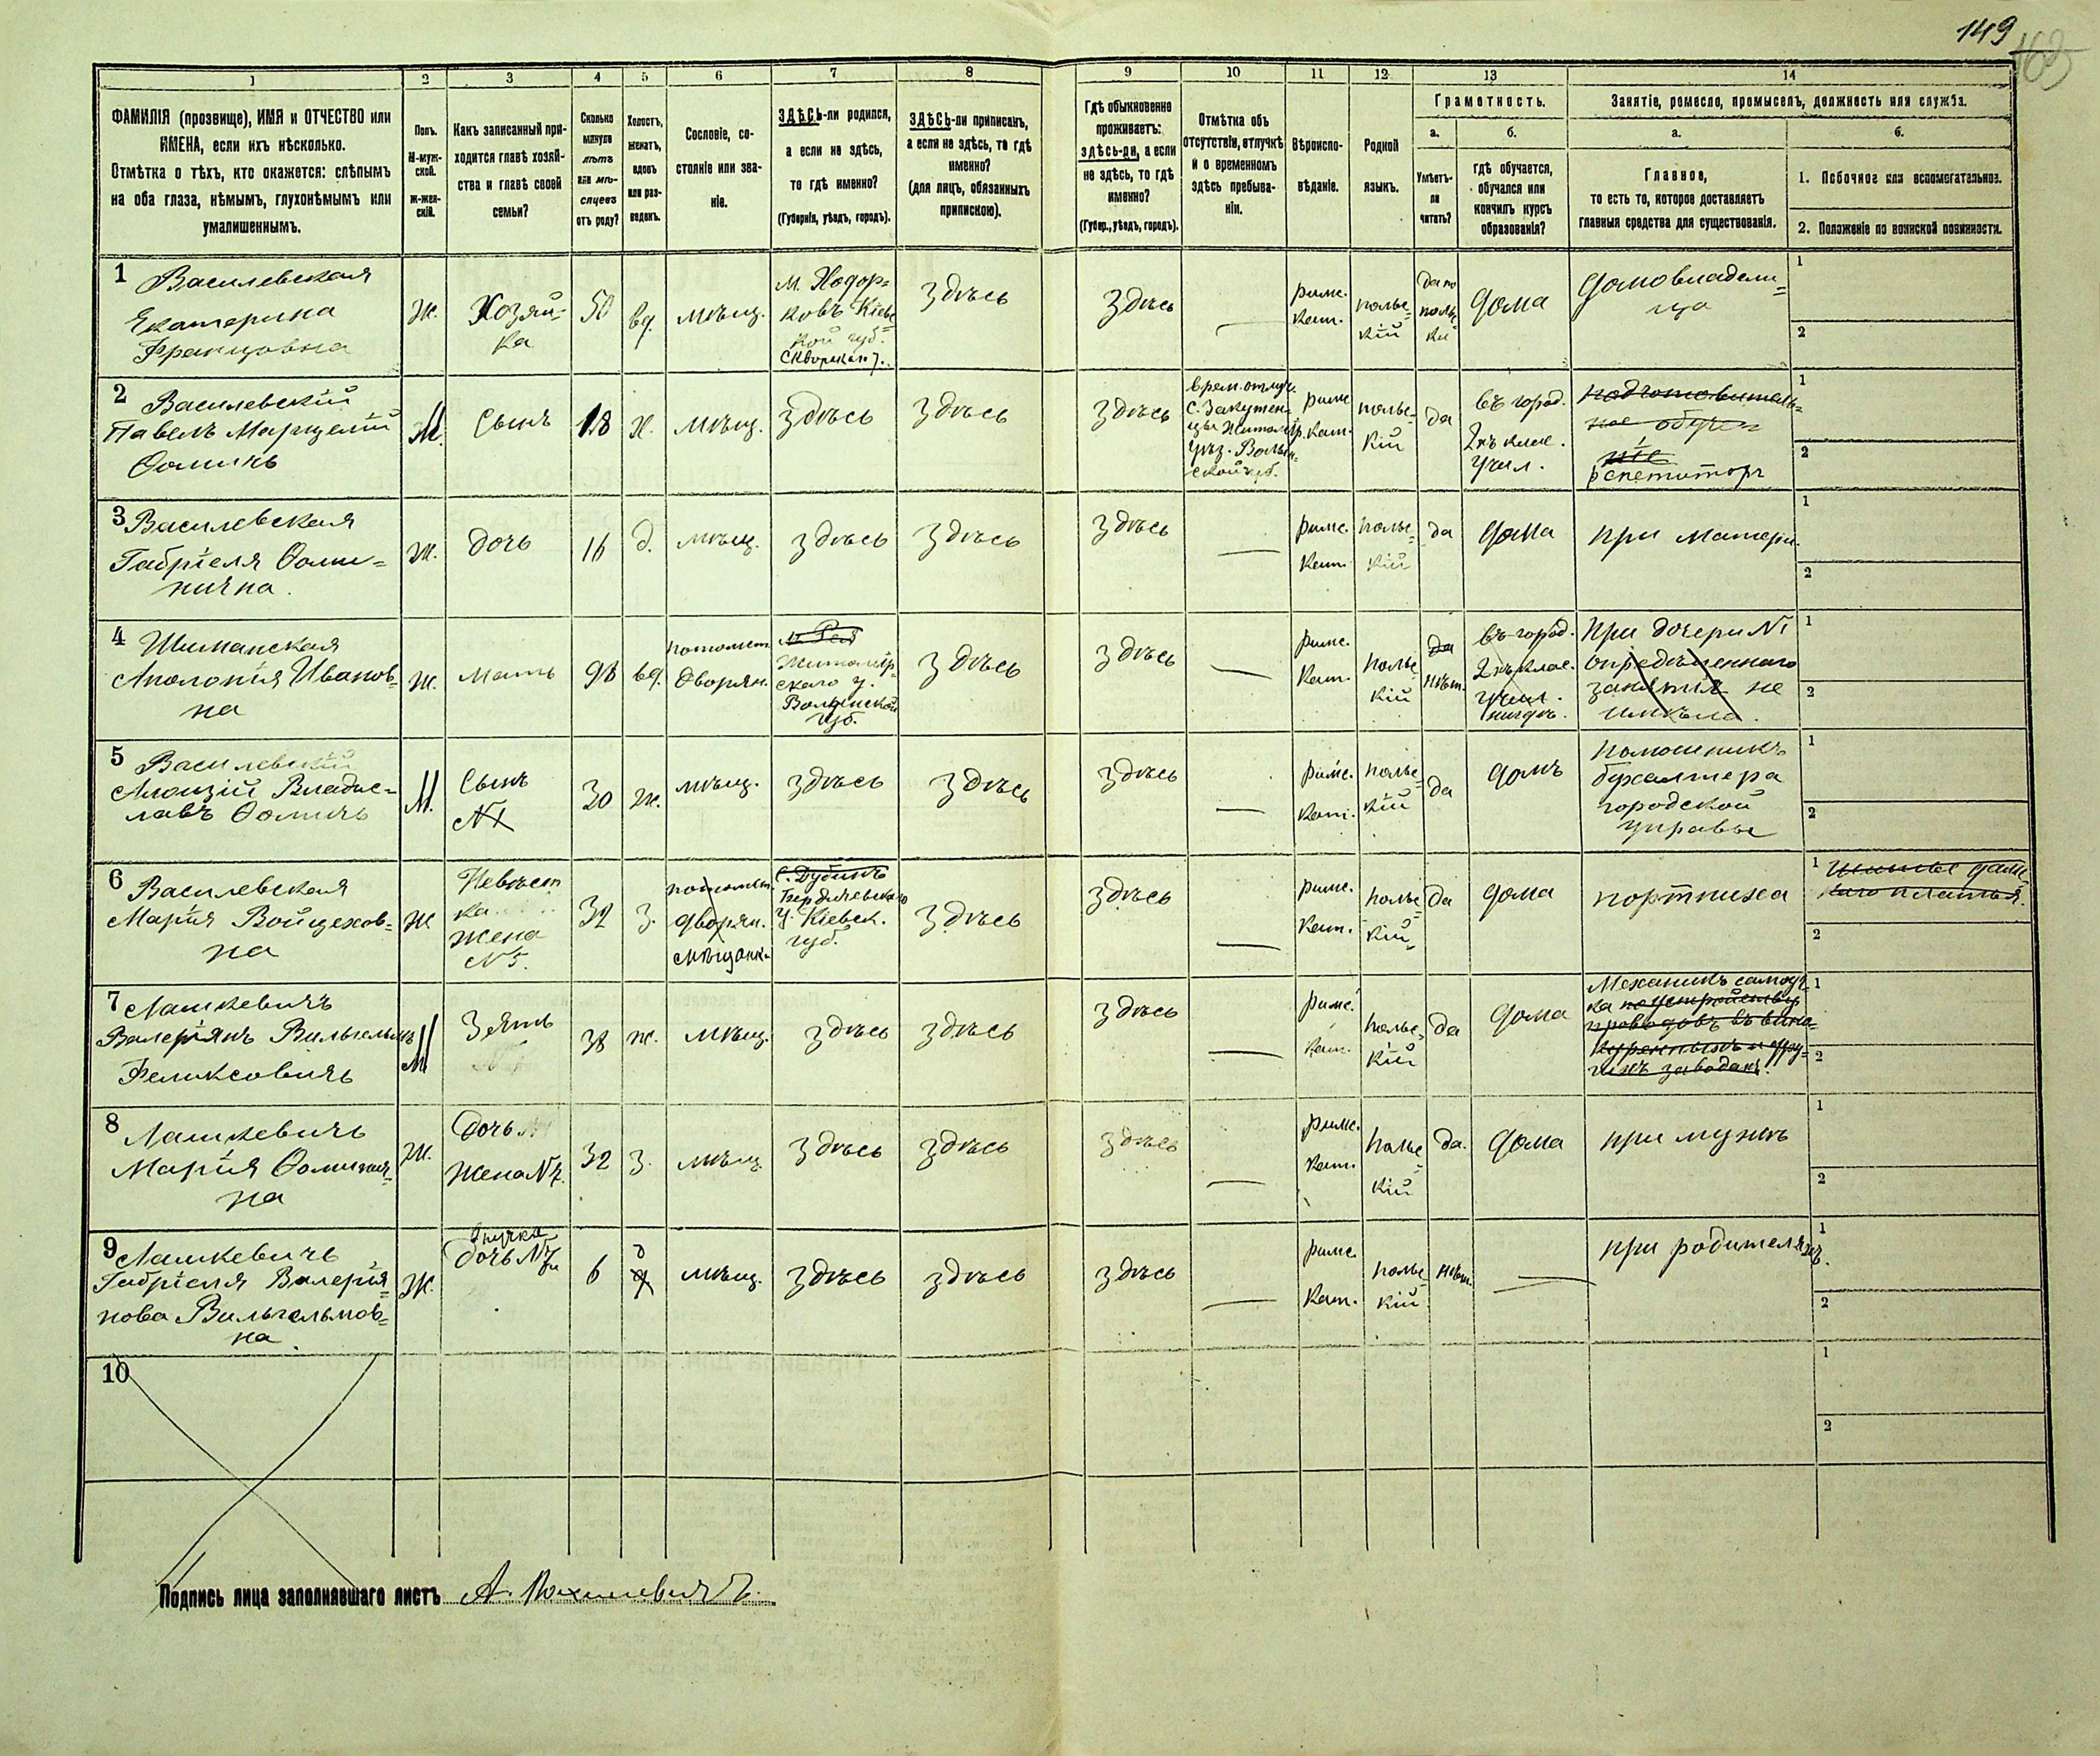 149
163
1 2 3 4 5 6 7 8 9 10 11 12 13 14
ФАМИЛІЯ (прозвище), ИМЯ и ОТЧЕСТВО или
ИМЕНА, если ихъ нѣсколько.
Отмѣтка о тѣхъ, кто окажется: слѣпымъ
на оба глаза, нѣмымъ, глухонѣмымъ или
умалишеннымъ.
Полъ.
М-муж-
ской.
Ж-жен-
скій.
Какъ записанный при-
ходится главѣ хозяй-
ства и главѣ своей
семьи?
Сколько
минуло
лѣтъ
или мѣ-
сяцевъ
отъ роду?
Холостъ,
женатъ,
вдовъ
или раз-
веденъ.
Сословіе, со-
стояніе или зва-
ніе.
ЗДѢСЬ-ли родился,
а если не здѣсь,
то гдѣ именно?
(Губернія, уѣздъ, городъ).
ЗДѢСЬ-ли приписанъ,
а если не здѣсь, то гдѣ
именно?
(для лицъ, обязанныхъ
припискою).
Гдѣ обыкновенно
проживаетъ:
здѣсь-ли, а если
не здѣсь, то гдѣ
именно?
(Губер., уѣздъ, городъ).
Отмѣтка объ
отсутствіи, отлучкѣ
и о временномъ
здѣсь пребыва-
ніи.
Вѣроиспо-
вѣданіе.
Родной
языкъ.
Грамотность.
а.
Умѣетъ-
ли
читать?
б.
гдѣ обучается,
обучался или
кончилъ курсъ
образованія?
Занятіе, ремесло, промыселъ, должность или служба.
а.
Главное,
то есть то, которое доставляетъ
главныя средства для существованія.
б.
1. Побочное или вспомогательное.
2. Положеніе по воинской повинности.
1 Василевская
Екатерина
Францовна
Ж.
Хозяй-
ка
50
вд.
мѣщ.
м. Ходор=
ковъ Кіевс
кой губ.
Сквирскаго у.
здѣсь
здѣсь
—
римс.
кат.
польс=
кій
да по
польс
ки
дома
домовладели=
ца
1
2
2 Василевскій
Павелъ Марцелій
Ѳомичъ
М.
Сынъ
18
х.
мѣщ.
здѣсь
здѣсь
здѣсь
врем. отлуч.
с. Закутен-
цы Житомір.
уѣз. Волын-
ской губ.
римс
кат.
польс-
кій
да
въ город.
2хъ клас.
учил.
подготовитель=
ное обуче=
ніе
репетиторъ
1
2
3 Василевская
Габріеля Ѳоми=
нична.
Ж.
дочь
16
д.
мѣщ.
здѣсь
здѣсь
здѣсь
—
римс.
кат.
польс
кій
да
дома
при матери.
1
2
4 Шиманская
Аполонія Иванов=
на
Ж.
мать
98
вд.
потомст.
дворян.
Житомір-
скаго у.
Волынской
губ.
здѣсь
здѣсь
—
римс.
кат.
польс
кій
да
нѣт.
въ город.
2хъ клас.
учил.
нигдѣ.
при дочери №1
опредѣленнаго
занятія не
имѣла.
1
2
5 Василевскій
Алоизій Владис=
лавъ Ѳомичъ
М.
Сынъ
№1
30
ж.
мѣщ.
здѣсь
здѣсь
здѣсь
—
римс.
кат.
польс=
кій
да
домъ
помошникъ
бухгалтера
городской
управы
1
2
6 Василевская
Марія Войцехов=
на
Ж
Невѣст
ка
жена
№5.
32
з.
потомст.
дворян.
мѣщанка
с. Дубинъ
Бердичевскаго
у. Кіевск.
губ.
здѣсь
здѣсь
—
римс.
кат.
польс
кій
да
дома
портниха
1 Шитье дамс
каго платья.
2
7 Лашкевичъ
Валеріянъ Вильгельмъ
Феликсовичъ
М
Зять
38
ж.
мѣщ.
здѣсь
здѣсь
здѣсь
—
римс.
кат.
польс=
кій
да
дома
Механикъ самоуч
ка по устройству
проводовъ въ вино=
куренныхъ и дру=
гихъ заводахъ.
1
2
8 Лашкевичъ
Марія Ѳоминич=
на
Ж.
Дочь №1
жена №7.
32
з.
мѣщ.
здѣсь
здѣсь
здѣсь
—
римс.
кат.
польс
кій
да.
дома
при мужѣ
1
2
9 Лашкевичъ
Габріеля Валерія=
нова Вильгельмов=
на
Ж.
Внучка
дочь №7
6
д
мѣщ.
здѣсь
здѣсь
здѣсь
—
римс.
кат.
польс
кій
нѣт.
—
при родителяхъ.
1
2
10
1
2
Подпись лица заполнявшаго листъ А.